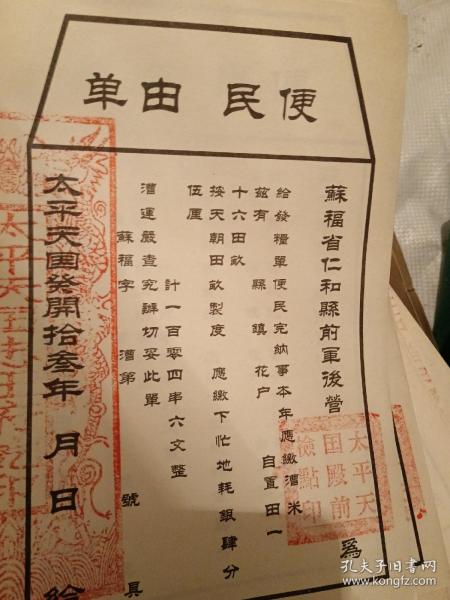 便民由单
蘇福省仁和縣前軍後營 為
給發糧單便民完納事本年應繳漕米
茲有 縣 鎮 花户 自置田一
十六田畝
按天朝田畝製度 應繳下忙地耗銀肆分
伍厘
計一百零四串六文整
漕運嚴查究辦切妥此單
蘇福字 漕第 號 具
太平天囯癸開拾叁年 月 日 給
太平天
囯殿前
檢點印
太平天
孔夫子旧书网
https://mbook.kongfz.com/